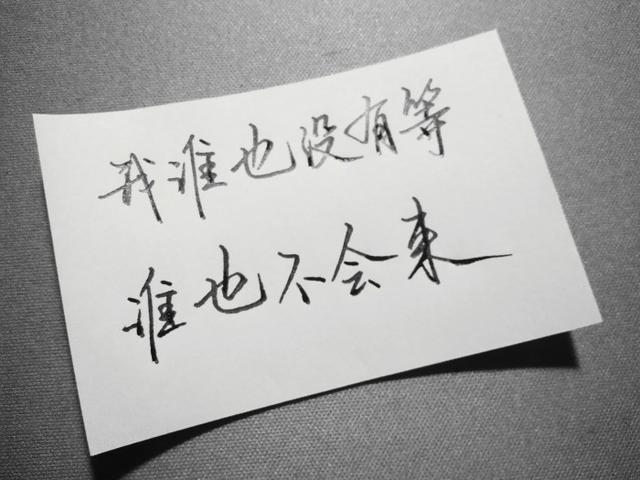 我谁也没有等
谁也不会来